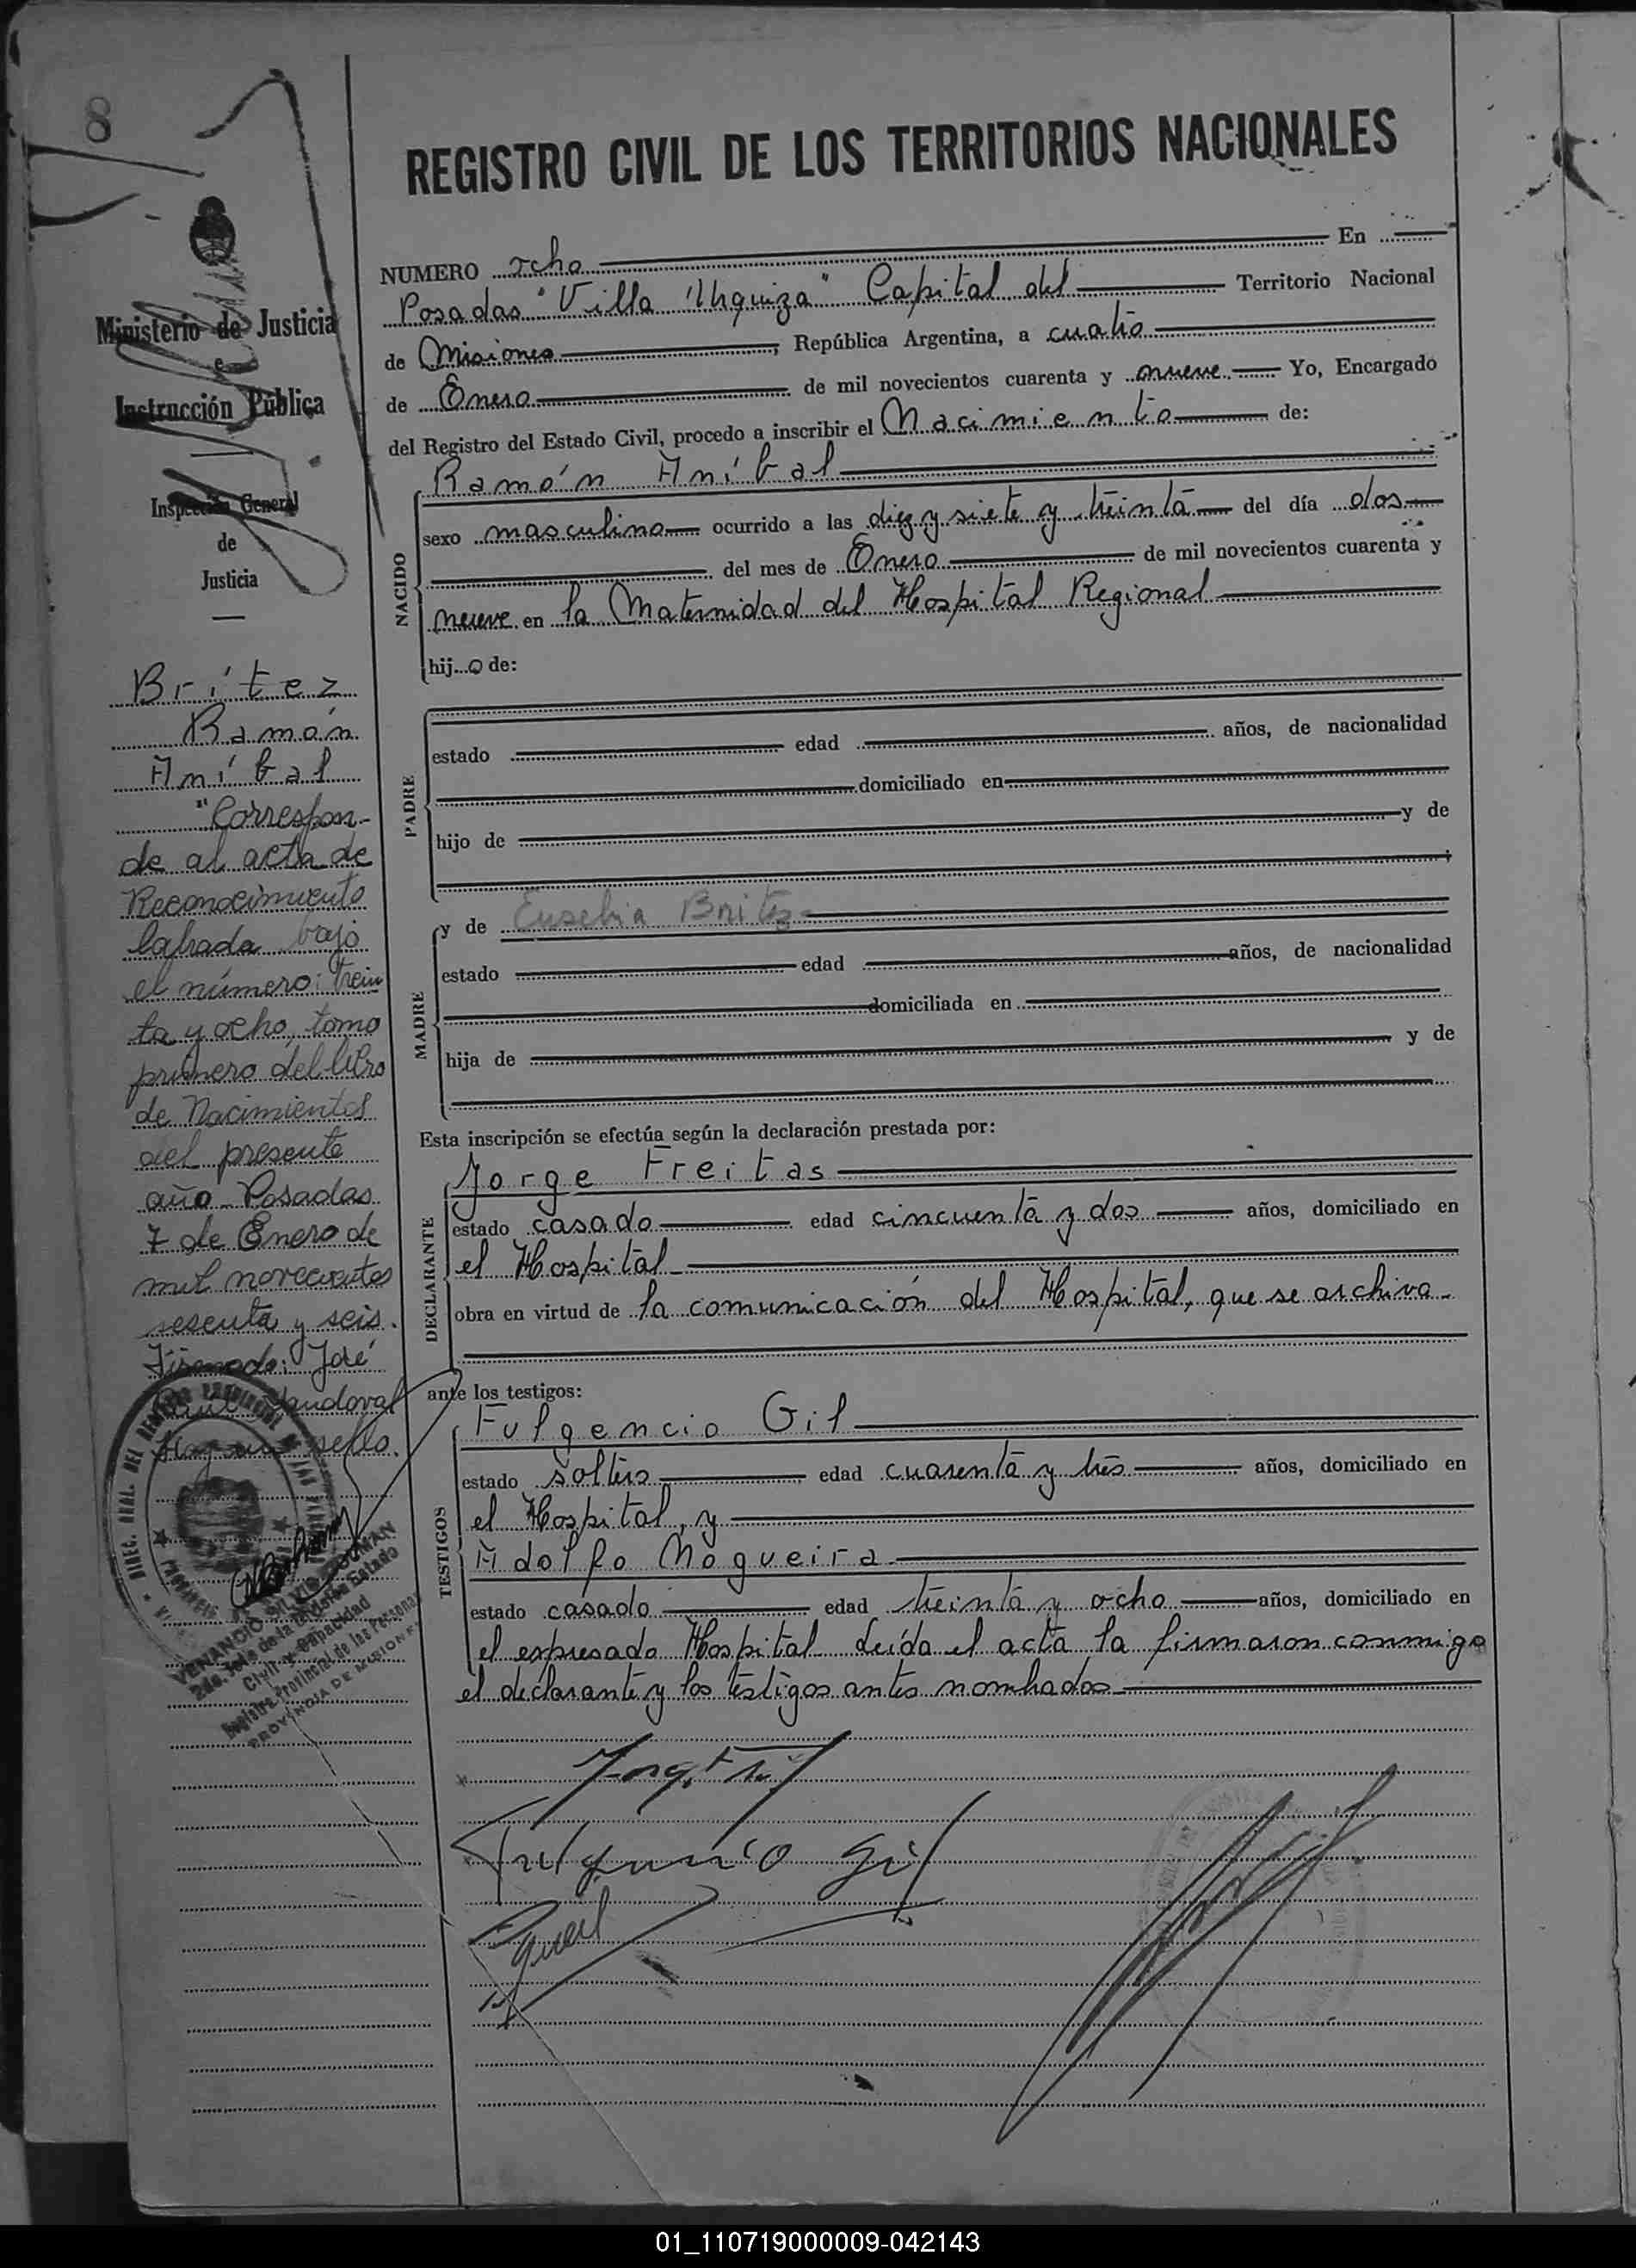 8
REGISTRO CIVIL DE LOS TERRITORIOS NACIONALES
Ministerio de Justicia
e
Instrucción Pública
Inspección General
de
Justicia
Brítez
Ramón
Aníbal
"Correspon-
de al acta de
Reconocimiento
labrada bajo
el número: trein
ta y ocho, tomo
primero del libro
de Nacimientos
del presente
año - Posadas
7 de Enero de
mil novecientos
sesenta y seis.
Firmado: José
Sandoval
sello.
DIREC. GRAL. DEL REGISTRO PROVINCIAL DE LAS PERSONAS
VENANCIO SILVIO
2do. Jefe de la División Estado
Civil y Capacidad
Registro Provincial de las Personas
PROVINCIA DE MISIONES
NUMERO ocho En
Posadas "Villa Urquiza" Capital del Territorio Nacional
de Misiones, República Argentina, a cuatro
de Enero de mil novecientos cuarenta y nueve Yo, Encargado
del Registro del Estado Civil, procedo a inscribir el Nacimiento de:
NACIDO
Ramón Aníbal
sexo masculino ocurrido a las diez y siete y treinta del día dos
del mes de Enero de mil novecientos cuarenta y
nueve en la Maternidad del Hospital Regional
hij o de:
PADRE
estado edad años, de nacionalidad
domiciliado en
hijo de y de
MADRE
y de Eusebia Britez
estado edad años, de nacionalidad
domiciliada en
hija de y de
Esta inscripción se efectúa según la declaración prestada por:
DECLARANTE
Jorge Freitas
estado casado edad cincuenta y dos años, domiciliado en
el Hospital
obra en virtud de la comunicación del Hospital, que se archiva
ante los testigos:
TESTIGOS
Fulgencio Gil
estado soltero edad cuarenta y tres años, domiciliado en
el Hospital, y
Adolfo Nogueira
estado casado edad treinta y ocho años, domiciliado en
el expresado Hospital Leída el acta la firmaron conmigo
el declarante y los testigos antes nombrados
Fulgencio Gil
01_110719000009-042143